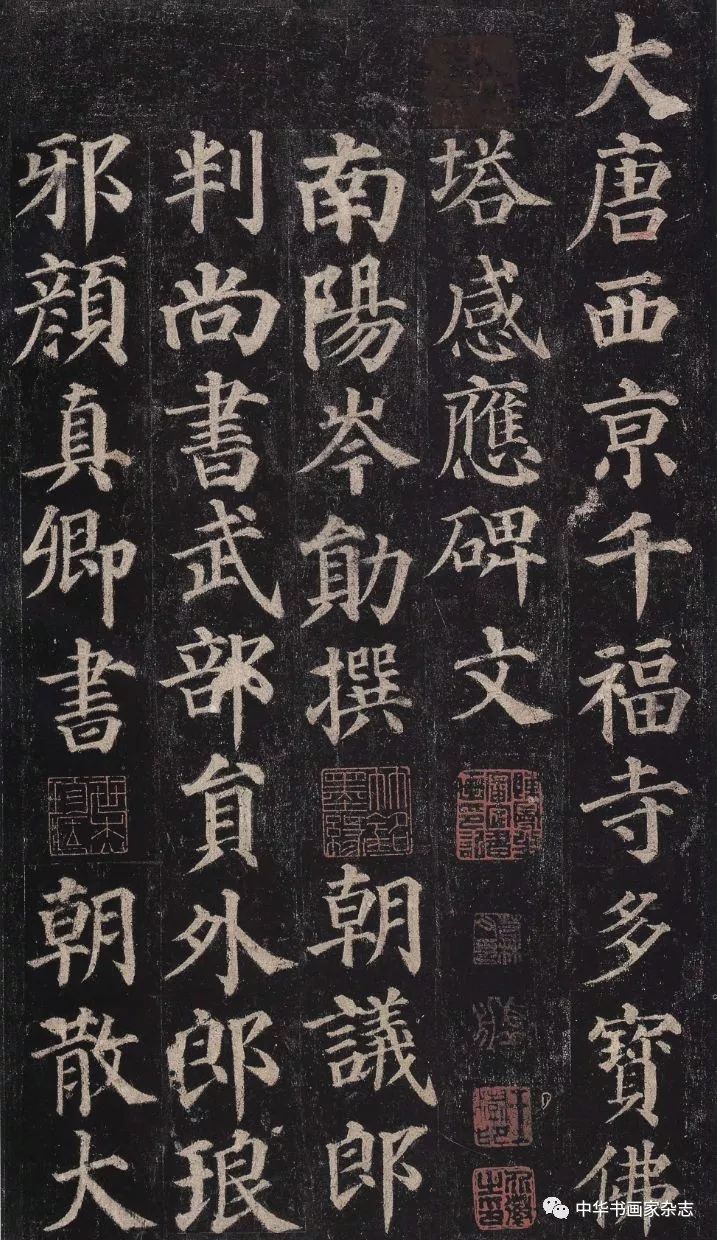 大唐西京千福寺多寳佛
塔感應碑文
南陽岑勛撰 朝議郎
判尚書武部貟外郎琅
邪顔真卿書 朝散大
中华书画家杂志